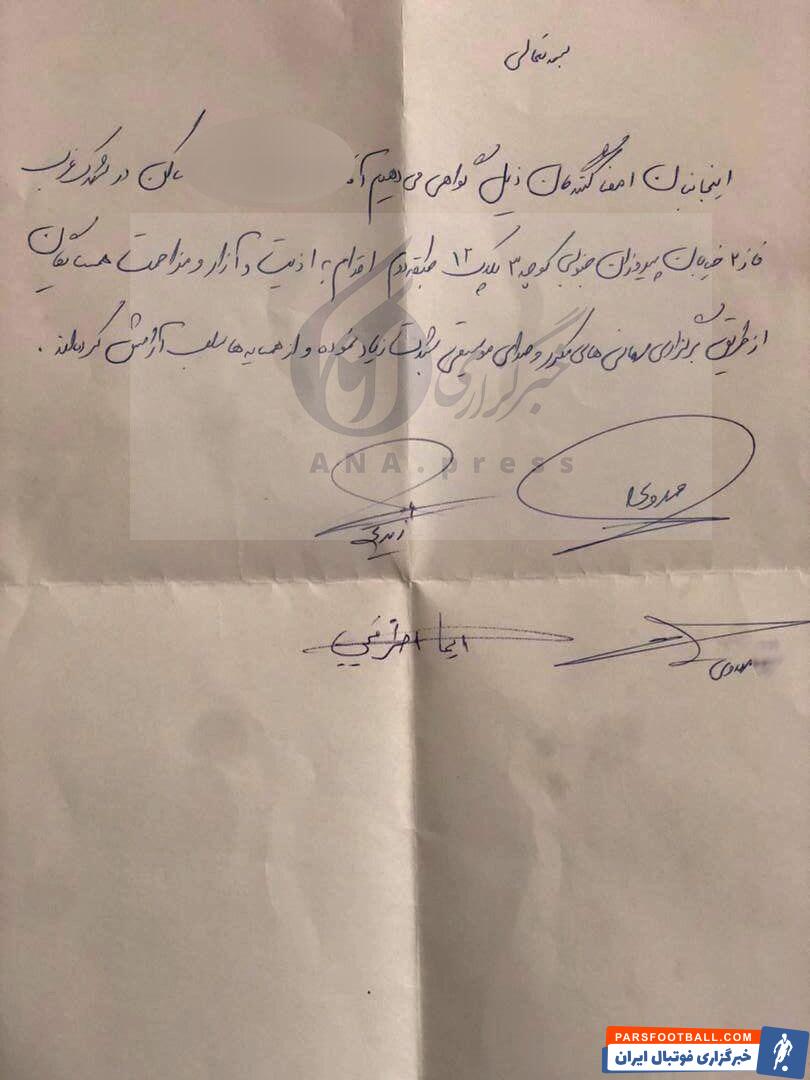 بسمه تعالی
اینجانبان امضا کنندگان ذیل گواهی می دهیم آقا ساکن در شهرک غرب
فاز ۲ خیابان پیروزان جنوبی کوچه ۳ پلاک ۱۲ طبقه دوم اقدام به اذیت و آزار و مزاحمت همسایگان
از طریق برگزاری مهمانی های مکرر و صدای موسیقی بشدت زیاد نموده و از همسایه ها سلب آرامش کرده‌اند .
خبرگزاری آنا
ANA.press
مهدوی
PARSFOOTBALL.COM
خبرگزاری فوتبال ایران